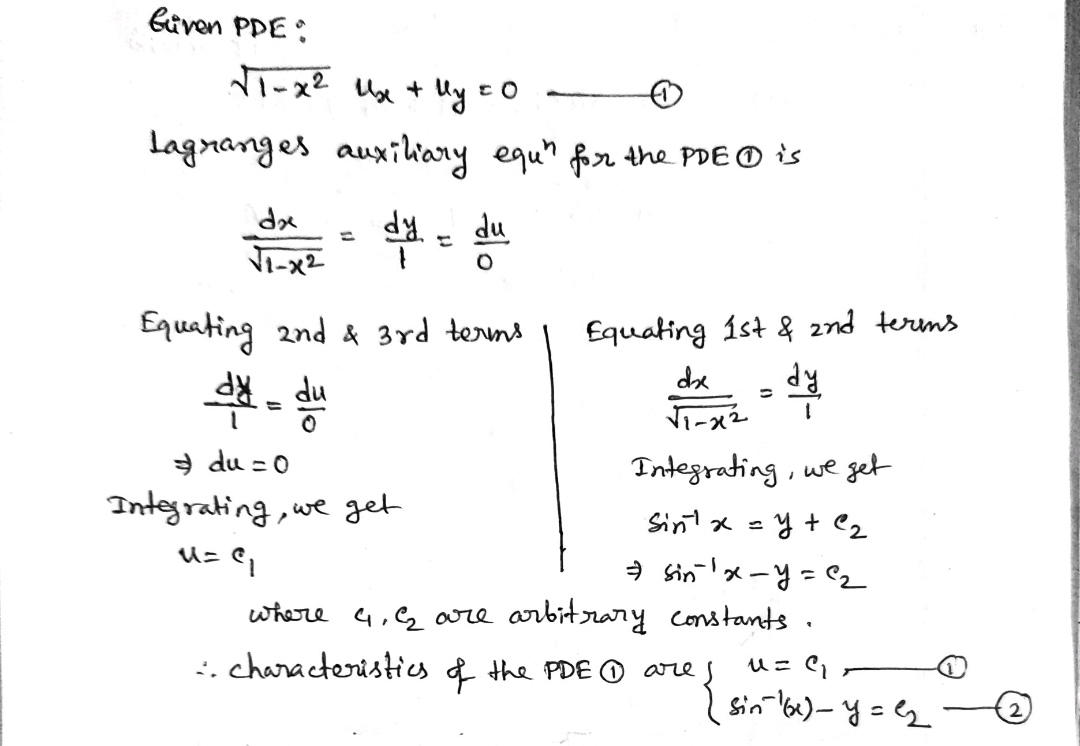 Given PDE :
√1-x² uₓ + u_y = 0 — ①
Lagranges auxiliary equⁿ for the PDE ① is
dx/√1-x² = dy/1 = du/0
Equating 2nd & 3rd terms
dy/1 = du/0
⇒ du = 0
Integrating, we get
u = c₁
Equating 1st & 2nd terms
dx/√1-x² = dy/1
Integrating, we get
Sin⁻¹ x = y + c₂
⇒ sin⁻¹ x - y = c₂
where c₁, c₂ are arbitrary constants.
∴ characteristics of the PDE ① are { u = c₁ — ①
sin⁻¹(x) - y = c₂ — ②